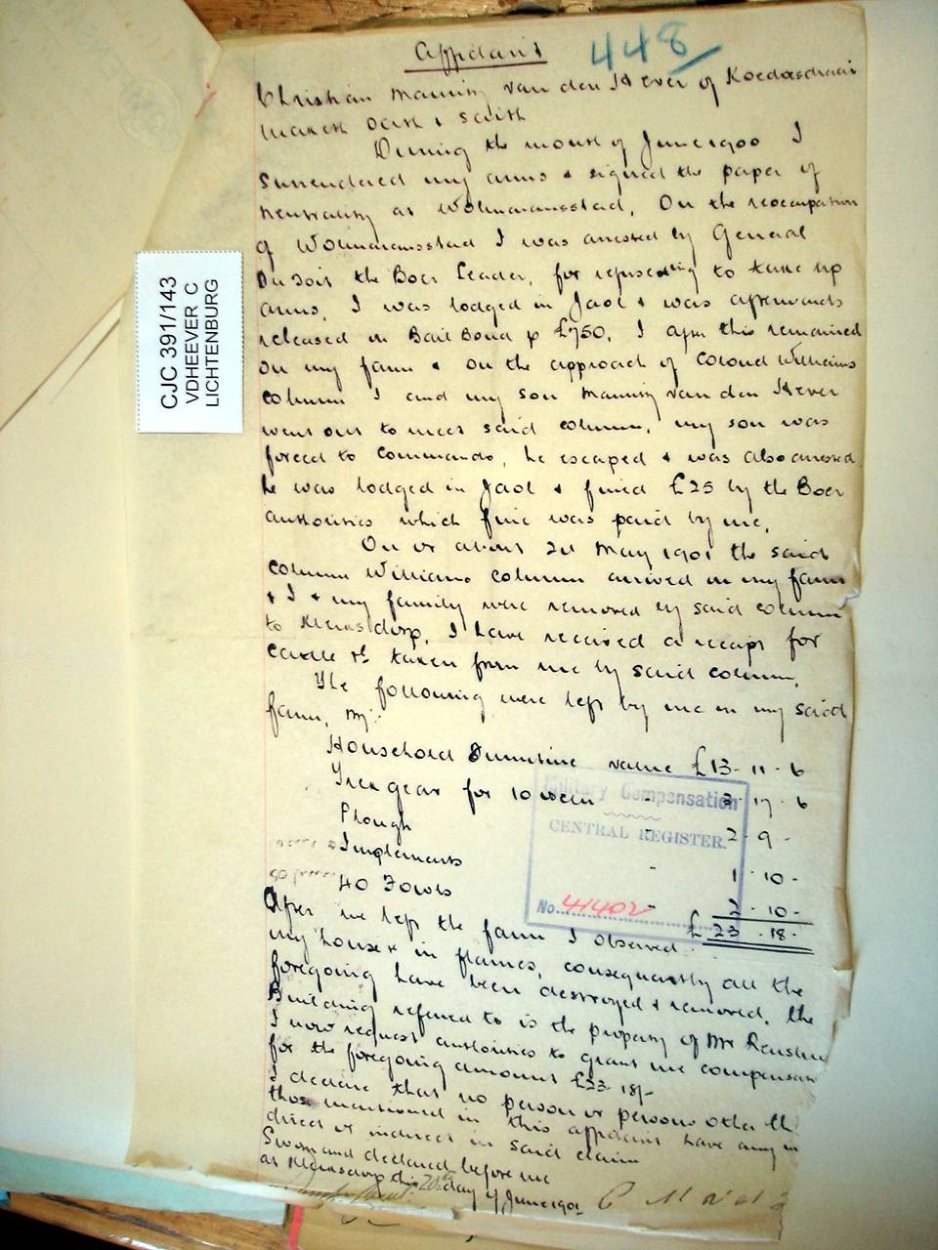 Affidavit 448
Christian Manning van den Heever of Koedoesdraai
maketh oath & saith
During the month of June 1900 I
surrendered my arms & signed the paper of
neutrality at Wolmaransstad. On the reoccupation
of Wolmaransstad I was arrested by General
Du Toit the Boer Leader, for refusing to take up
arms. I was lodged in Jaol & was afterwards
released on Bail Bond of £750. I after this remained
on my farm & on the approach of Colonel Williams
column I and my son Manning van den Heever
went out to meet said column. my son was
forced to Commando, he escaped & was also arrested
he was lodged in Jaol & fined £25 by the Boer
authorities which fine was paid by me.
On or about 2d May 1901 the said
column Williams column arrived on my farm
& I & my family were removed by said column
to Klerksdorp. I have received a receipt for
cattle &c taken from me by said column.
The following were left by me on my said
farm,
Household Furniture value £13-11-6
Trek gear for 10 oxen - 3-17-6
Plough - 2-9-
Implements - 1-10-
40 Fowls - 2-10-
£ 23-18-
After we left the farm I observed
my house in flames, consequently all the
foregoing have been destroyed & removed. the
Building referred to is the property of Mr
I now request authorities to grant me compensa
for the foregoing amount £23-18/-
I declare that no person or persons other th
those mentioned in this affidavit have any in
direct or indirect in said claim
Sworn and declared before me
at Klerksdorp this 20th day of June 1901
CJC 391/143
VDHEEVER C
LICHTENBURG
Military Compensation
CENTRAL REGISTER.
No. 41402